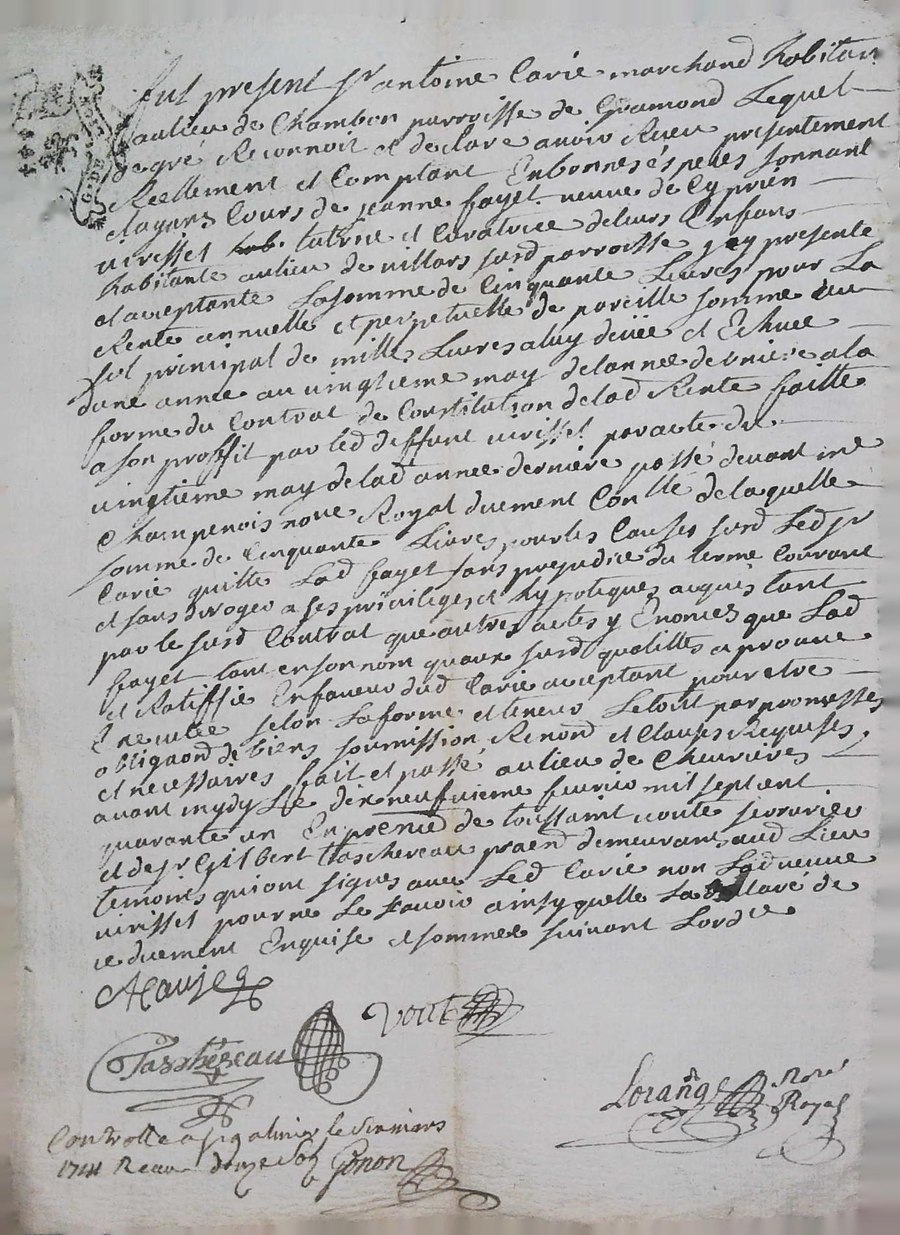 fut present sr antoine Carié marchand habitan
au lieu de Chambon parroisse de Gramond Lequel
de gré Reconnoit et declare avoir Receu presentement
Reellement et Comptant En bonnes espéces sonnant
et ayans Cours de jeanne fayet veuve de Cyprien
virisset tutrice et Curatrice de leurs Enfans
habitante au lieu de villars susd parroisse y presente
et acceptante La somme de Cinquante Livres pour La
Rente annuelle et perpetuelle de pareille somme au
sol principal de mille Livres a luy deüe et Echuee
dune année au vingtieme may de lannee derniere a la
forme du Contrat de Constitution de lad Rente faitte
a son proffit par led deffunt virisset par acte du
vingtieme may de lad année derniere passé devant me
Champenois nore Royal duement Conlle de laquelle
somme de Cinquante Livres pour les Causes susd Led sr
Carié quitte Lad fayet sans prejudice du terme Courant
et sans deroger a ses privileges et hypotiques acquis tant
par le susd Contrat que autres actes y Enoncés que Lad
fayet tant en son nom quaux susd qualittés approuve
et Ratiffie En faveur dud Carié acceptant pour etre
Executée selon La forme et teneur Le tout par promesses
obligaond de biens soumission Renond et Clauses Requises
et necessaires fait et passé au lieu de Chevrieres
avant mydy Le dix neufvieme fevrier mil sept cent
quarante un En presence de toussaint voute serrurier
et de sr Gilbert taschereau praend demeurans aud Lieu
temoins qui ont signés avec Led Carié non Lad veuve
virisset pour ne Le scavoir ainsy quelle La declaré de
ce duement Enquise et sommée suivant Lordce
voute
Taschereau
Lorange Nore
Royal
Controllé a st galmier le six mars
1741 Receu douze sols Gonon